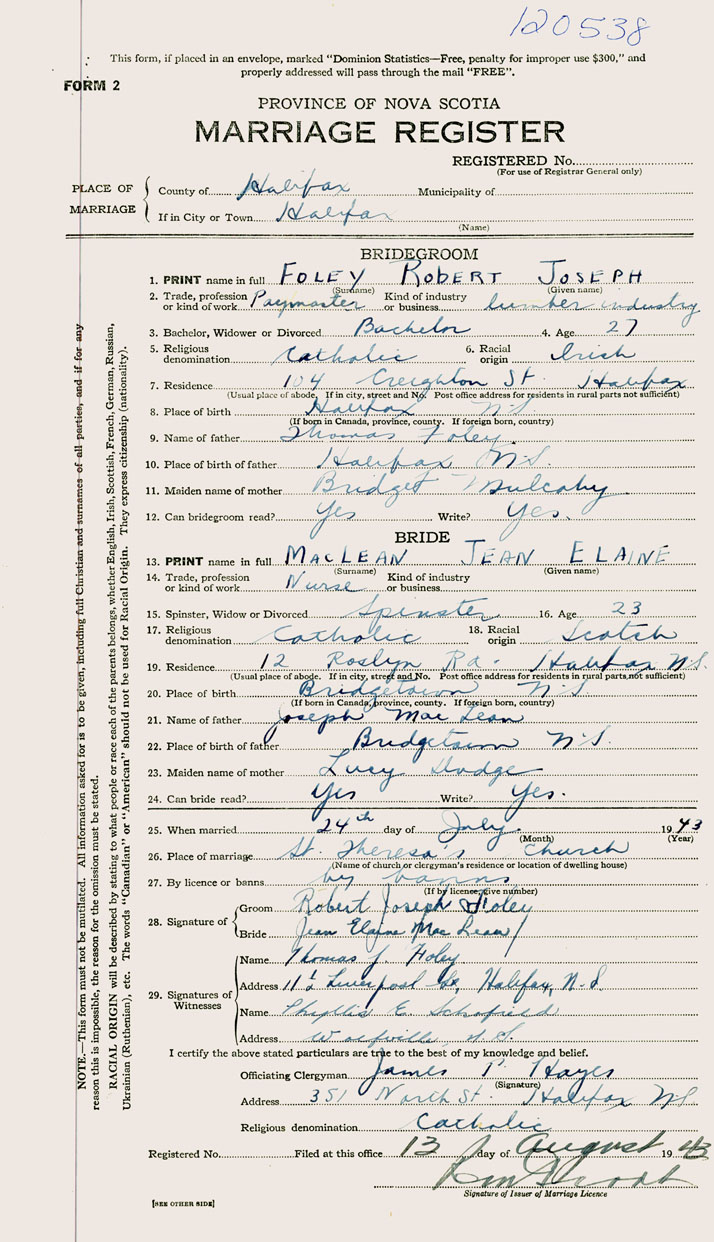 120538
This form, if placed in an envelope, marked "Dominion Statistics—Free, penalty for improper use $300," and
properly addressed will pass through the mail "FREE".
FORM 2
PROVINCE OF NOVA SCOTIA
MARRIAGE REGISTER
REGISTERED No.
(For use of Registrar General only)
PLACE OF MARRIAGE
County of Halifax Municipality of
If in City or Town Halifax
(Name)
BRIDEGROOM
1. PRINT name in full FOLEY ROBERT JOSEPH
(Surname) (Given name)
2. Trade, profession or kind of work Paymaster Kind of industry or business lumber industry
3. Bachelor, Widower or Divorced Bachelor 4. Age 27
5. Religious denomination Catholic 6. Racial origin Irish
7. Residence 104 Creighton St. Halifax
(Usual place of abode. If in city, street and No. Post office address for residents in rural parts not sufficient)
8. Place of birth Halifax N.S.
(If born in Canada, province, county. If foreign born, country)
9. Name of father Thomas Foley
10. Place of birth of father Halifax N.S.
11. Maiden name of mother Bridget Mulcahy
12. Can bridegroom read? Yes Write? Yes.
BRIDE
13. PRINT name in full MACLEAN JEAN ELAINE
(Surname) (Given name)
14. Trade, profession or kind of work Nurse Kind of industry or business
15. Spinster, Widow or Divorced Spinster 16. Age 23
17. Religious denomination Catholic 18. Racial origin Scotch
19. Residence 12 Roslyn Rd. Halifax N.S.
(Usual place of abode. If in city, street and No. Post office address for residents in rural parts, not sufficient)
20. Place of birth Bridgetown N.S.
(If born in Canada, province, county. If foreign born, country)
21. Name of father Joseph MacLean
22. Place of birth of father Bridgetown N.S.
23. Maiden name of mother Lucy Dodge
24. Can bride read? Yes Write? Yes.
25. When married 24th day of July 1943
(Month) (Year)
26. Place of marriage St. Theresa's Church
(Name of church or clergyman's residence or location of dwelling house)
27. By licence or banns by banns
(If by licence, give number)
28. Signature of
Groom Robert Joseph Foley
Bride Jean Elaine MacLean
29. Signatures of Witnesses
Name Thomas J. Foley
Address 11½ Liverpool St., Halifax, N.S.
Name Phyllis E. Schofield
Address Wolfville, N.S.
I certify the above stated particulars are true to the best of my knowledge and belief.
Officiating Clergyman James P. Hayes
(Signature)
Address 351 North St. Halifax NS
Religious denomination Catholic
Registered No. Filed at this office 13 day of August 1943
Signature of Issuer of Marriage Licence
[SEE OTHER SIDE]
NOTE.—This form must not be mutilated. All information asked for is to be given, including full Christian and surnames of all parties, and if for any
reason this is impossible, the reason for the omission must be stated.
RACIAL ORIGIN will be described by stating to what people or race each of the parents belongs, whether English, Irish, Scottish, French, German, Russian,
Ukrainian (Ruthenian), etc. The words "Canadian" or "American" should not be used for Racial Origin. They express citizenship (nationality).